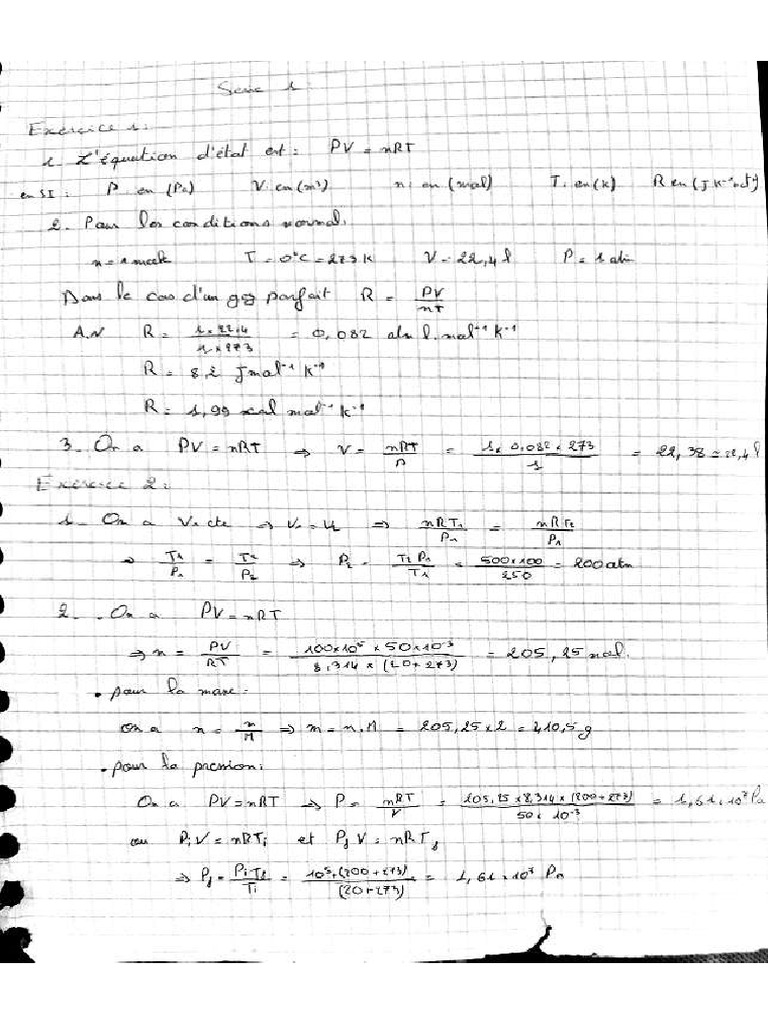 Serie 1
Exercice 1:
1. L'équation d'état est: PV = nRT
en SI: P en (Pa) V en (m³) n: en (mol) T: en (k) R en (J K⁻¹ mol⁻¹)
2. Pour les conditions normal.
n = 1 mole T = 0°C = 273 K V = 22,4 l P = 1 atm
Dans le cas d'un gaz parfait R = PV / nT
A.N R = 1 × 22,4 / 1 × 273 = 0,082 atm l. mol⁻¹ K⁻¹
R = 8,2 J mol⁻¹ K⁻¹
R = 1,99 cal mol⁻¹ K⁻¹
3. On a PV = nRT ⇒ V = nRT / P = 1 × 0,082 × 273 / 1 = 22,38 ≃ 22,4 l
Exercice 2:
1. On a V = cte ⇒ V₁ = V₂ ⇒ nRT₁ / P₁ = nRT₂ / P₁
⇒ T₁ / P₁ = T₂ / P₂ ⇒ P₂ = T₂ P₁ / T₁ = 500 × 100 / 250 = 200 atm
2. On a PV = nRT
⇒ n = PV / RT = 100 × 10⁵ × 50 × 10⁻³ / 8,314 × (20 + 273) = 205,25 mol.
• pour la masse:
on a n = m / M ⇒ m = n.M = 205,25 × 2 = 410,5 g
• pour la pression:
On a PV = nRT ⇒ P = nRT / V = 205,25 × 8,314 × (200 + 273) / 50 × 10⁻³ = 1,61 . 10⁷ Pa
ou PᵢV = nRTᵢ et P_f V = nRT_f
⇒ P_f = Pᵢ T_f / Tᵢ = 10⁵ × (200 + 273) / (20 + 273) = 1,61 × 10⁷ Pa